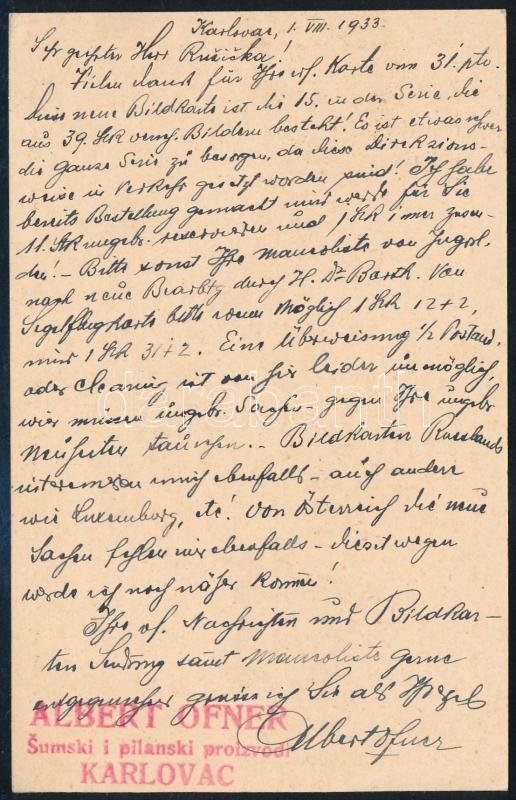 Karlovac, 1. VIII. 1933.
Sehr geehrter Herr Ružička!
Vielen dank für Ihre wf. Karte vom 31. pto.
Diese neue Bildkarte ist die 15. in der Serie, die
aus 39. Stk versch. Bildern besteht! Es ist etwas schwer
die ganze Serie zu besorgen, da diese Direktions-
weise in Verkehr gesetzt worden sind! Ich habe
bereits Bestellung gemacht und werde für Sie
11. Stk ungebr. reservieren und 1 Stk immer zusen-
den! - Bitte sonst Ihre mancoliste von Jugosl.
nach neue durch H. Dr. Barth. Von
Segelflugkarte bitte wenn möglich 1 Stk 12+2,
und 1 Stk 31+2. Eine Überweisung 1/2 Postanw.
oder Clearing ist von hier leider unmöglich,
wir müssen ungebr. Sachen gegen Ihre ungebr
Neuheiten tauschen. - Bildkarten Russlands
interessieren mich ebenfalls - auch andere
wie Luxemburg, etc! Von Österreich die neue
Sachen fehlen mir ebenfalls - diesetwegen
werde ich noch näher kommen!
Ihre wf. Nachrichten und Bildkar-
ten Sendung samt Mancoliste gerne
entgegensehend ich Sie als Ihr
Albert Ofner
ALBERT OFNER
Šumski i pilanski proizvodi
KARLOVAC
darabanth